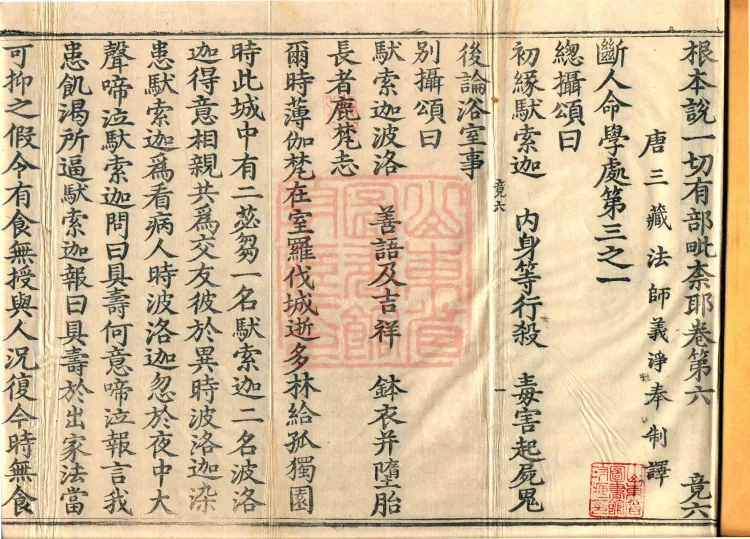 根本說一切有部毗柰耶卷第六 竟六
唐三藏法師義淨奉 制譯
斷人命學處第三之一
總攝頌曰
初緣馱索迦 內身等行殺 毒害起屍鬼
竟六 一
後論浴室事
別攝頌曰
馱索迦波洛 善語及吉祥 鉢衣并墮胎
長者鹿梵志
爾時薄伽梵在室羅伐城逝多林給孤獨園
時此城中有二苾芻一名馱索迦二名波洛
迦得意相親共爲交友彼於異時波洛迦染
患馱索迦爲看病人時波洛迦忽於夜中大
聲啼泣馱索迦問曰具壽何意啼泣報言我
患飢渴所逼馱索迦報曰具壽於出家法當
可抑之假令有食無授與人況復今時無食